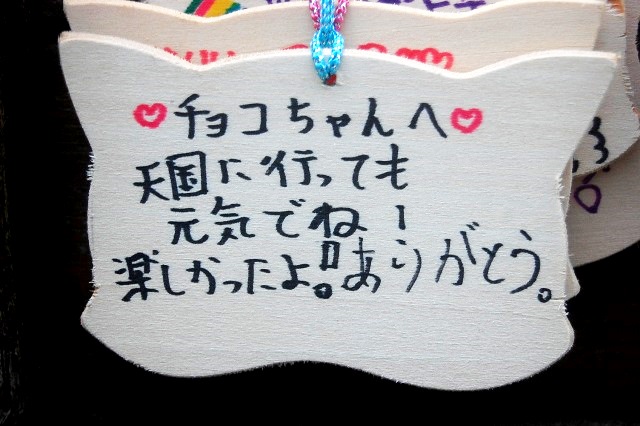 ♥チョコちゃんへ♥
天国に行っても
元気でね!
楽しかったよ!!ありがとう。